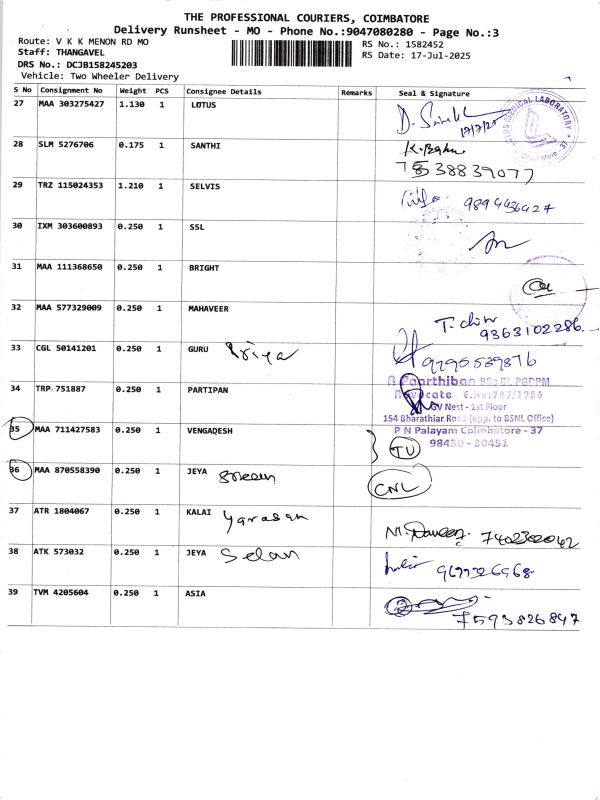 THE PROFESSIONAL COURIERS, COIMBATORE
Delivery Runsheet - MO - Phone No.:9047080280 - Page No.:3
Route: V K K MENON RD MO
RS No.: 1582452
Staff: THANGAVEL
RS Date: 17-Jul-2025
DRS No.: DCJB158245203
Vehicle: Two Wheeler Delivery
S No Consignment No Weight PCS Consignee Details Remarks Seal & Signature
27 MAA 303275427 1.130 1 LOTUS
17/7/25
28 SLM 5276706 0.175 1 SANTHI
29 TRZ 115024353 1.210 1 SELVIS
30 IXM 303600893 0.250 1 SSL
31 MAA 111368650 0.250 1 BRIGHT
32 MAA 577329009 0.250 1 MAHAVEER
9363102286.
33 CGL 50141201 0.250 1 GURU Priya
34 TRP 751887 0.250 1 PARTIPAN
154 Bharathiar Road (opp. to BSNL Office)
35 MAA 711427583 0.250 1 VENGADESH
P N Palayam Coimbatore - 37
98430 - 30451
36 MAA 870558390 0.250 1 JEYA
CNL
37 ATR 1804067 0.250 1 KALAI
38 ATK 573032 0.250 1 JEYA
39 TVM 4205604 0.250 1 ASIA
7593826847